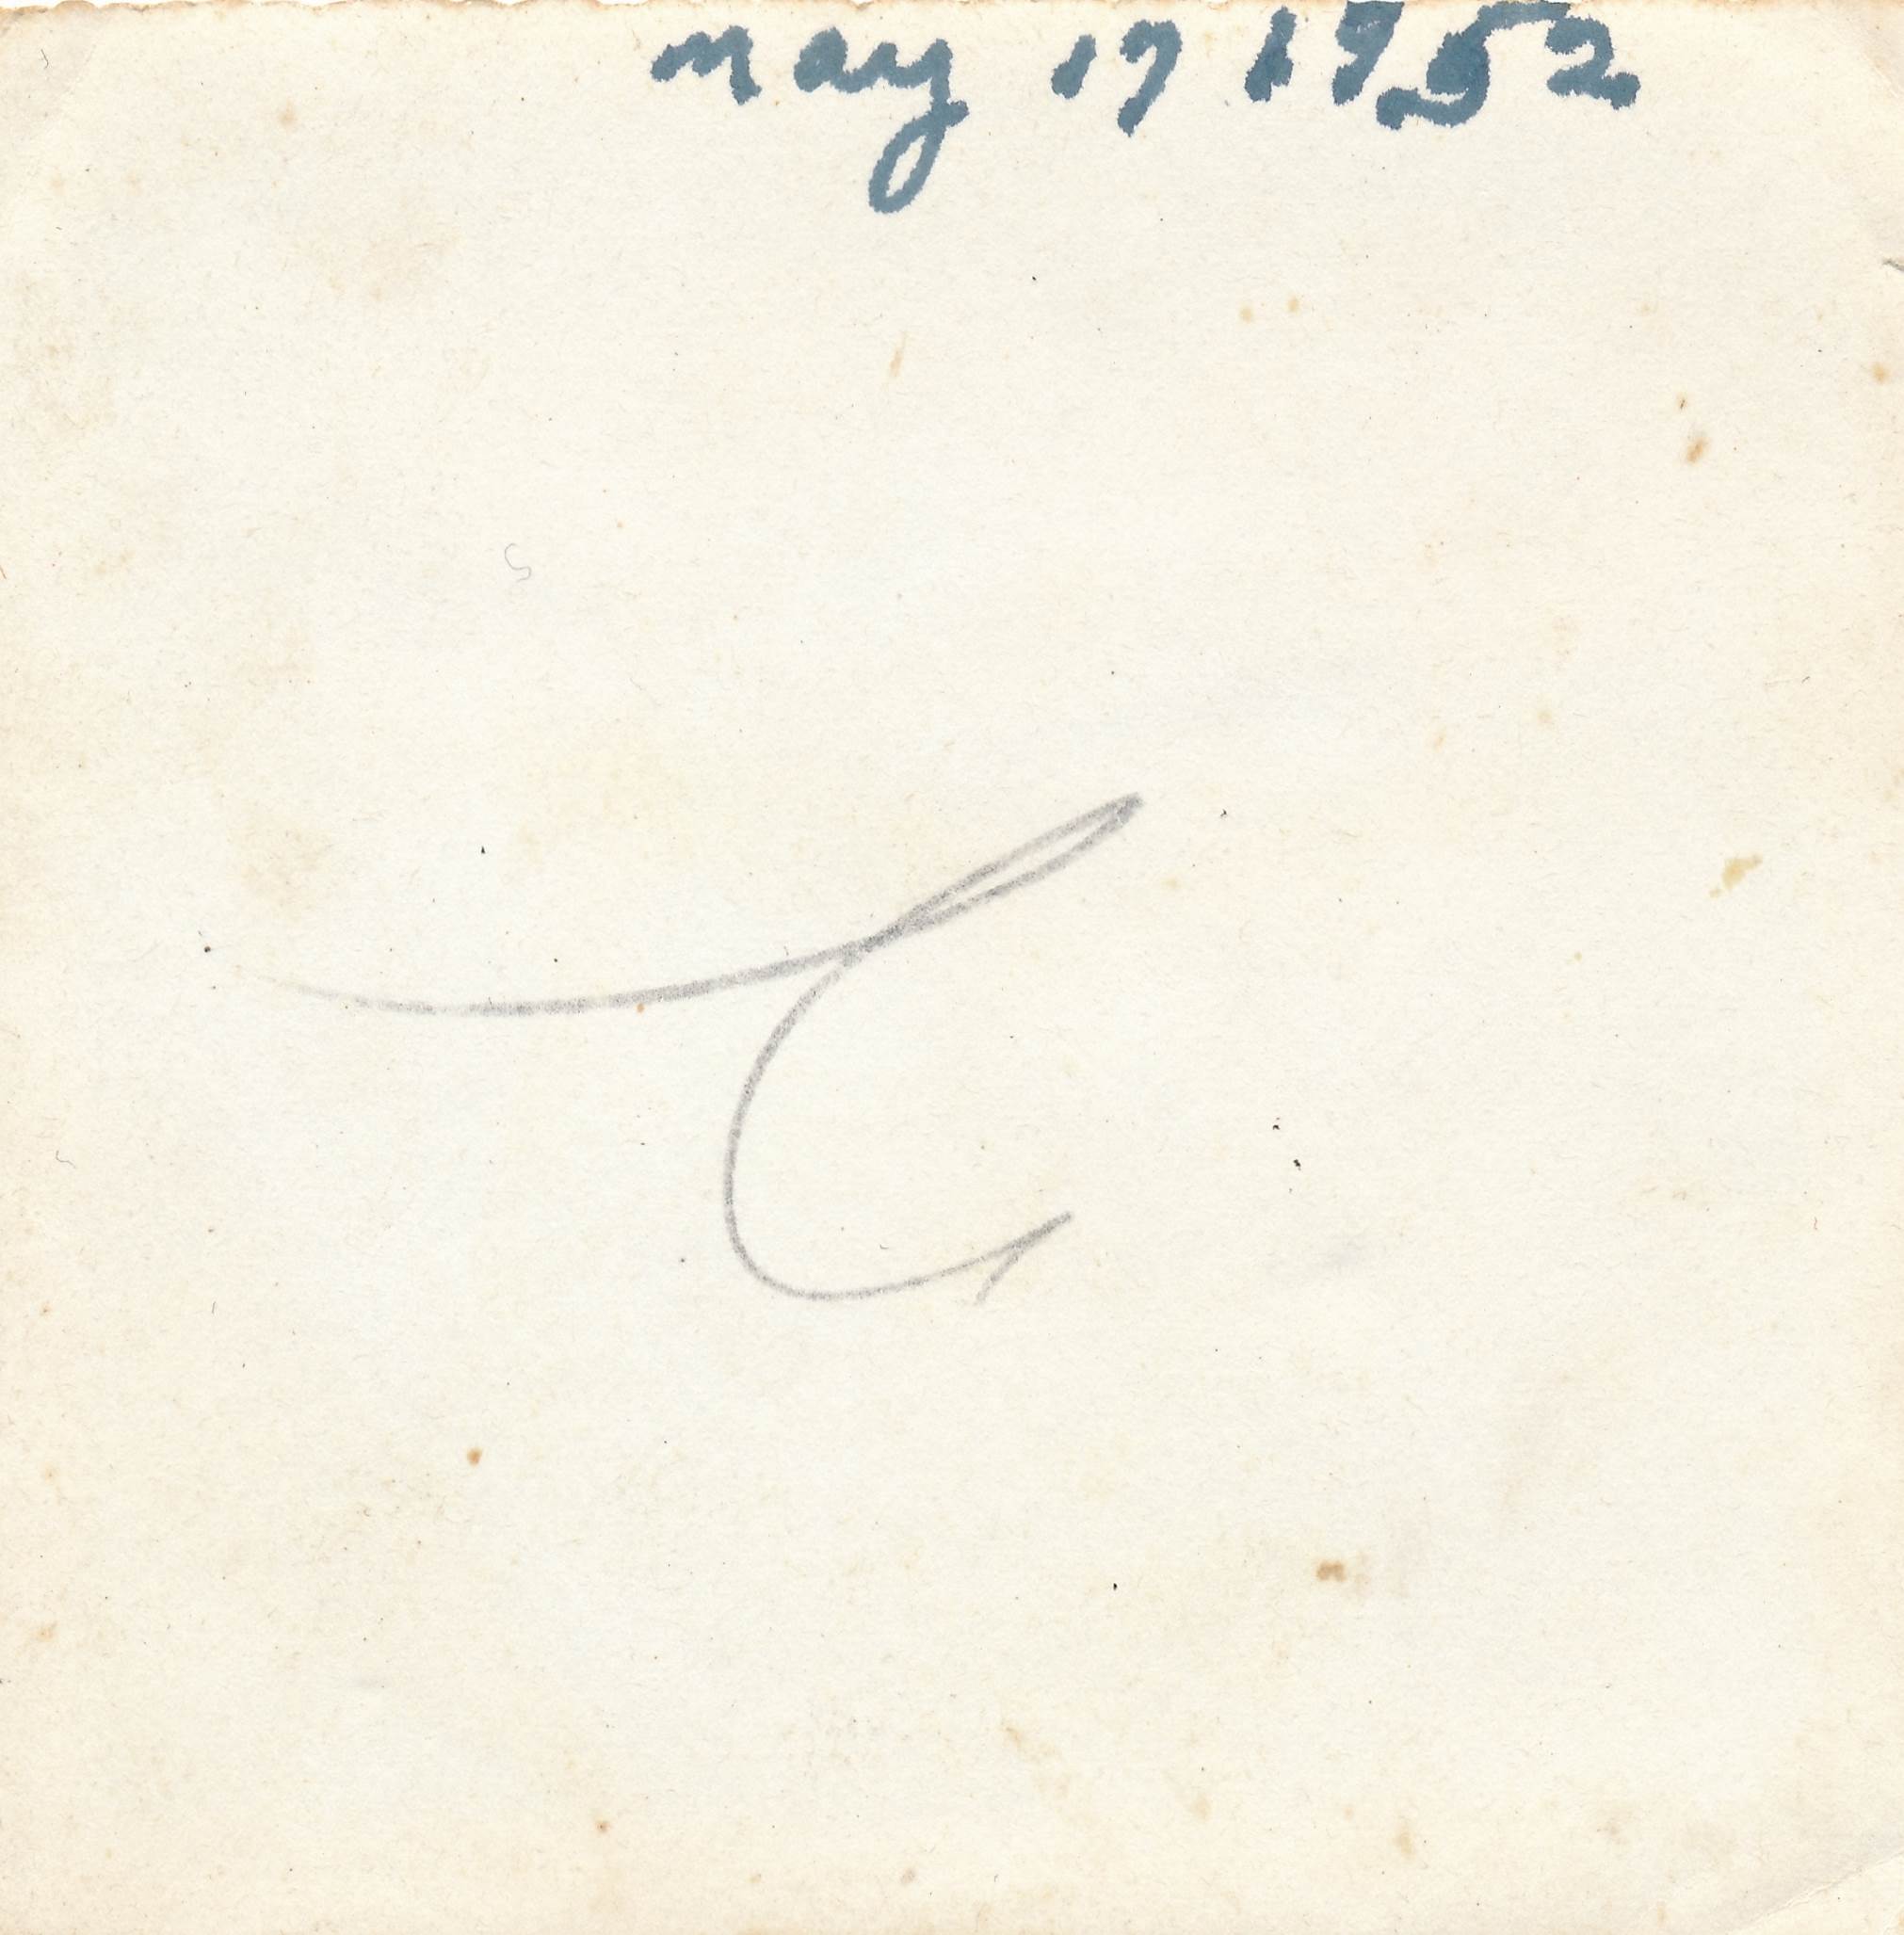 may 17 1952